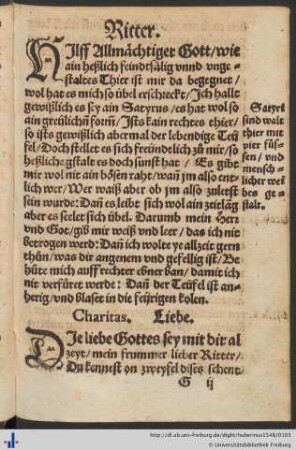 Ritter.
HIlff Allmächtiger Gott / wie
ain heßlich feindtsälig vnnd vnge-
staltes Thier ist mir da begegnet /
wol hat es mich so übel erschreckt / Ich halt
gewißlich es sey ain Satyrus / es hat wol so
ain greülichñ form / Ists kain rechtes thier /
so ists gewißlich abermal der lebendige Teü-
fel / Doch stellet es sich freündtlich zů mir / so
heßliche gstalt es doch sunst hat / Es gibt
mir wol nit ain bösen raht / wañ jm also ent-
lich wer / Wer waiß aber ob jm also zuletst
sein wurde: Dañ es leibt sich wol ain zeitläg
aber es seelet sich übel. Darumb mein Herr
vnd Got / gib mir weiß vnd leer / das ich nit
betrogen werd: Dañ ich wolte ye allzeyt gern
thůn / was dir angenem vnd gefellig ist / Be-
hüte mich auff rechter ebner ban / damit ich
nit verfüret werde: Dañ der Teüfel ist an-
herig / vnd blaset in die feijrigen kolen.
Satyri
sind walt
thier mit
vier füs-
sen / vnd
mensch-
licher wei
des ge-
stalt.
Charitas. Liebe.
DIe liebe Gottes sey mit dir al
zeyt / mein frummer lieber Ritter /
Du kennest on zweyfel dises schent-
G ij
http://dl.ub.uni-freiburg.de/diglit/hubermus1548/0101
© Universitätsbibliothek Freiburg